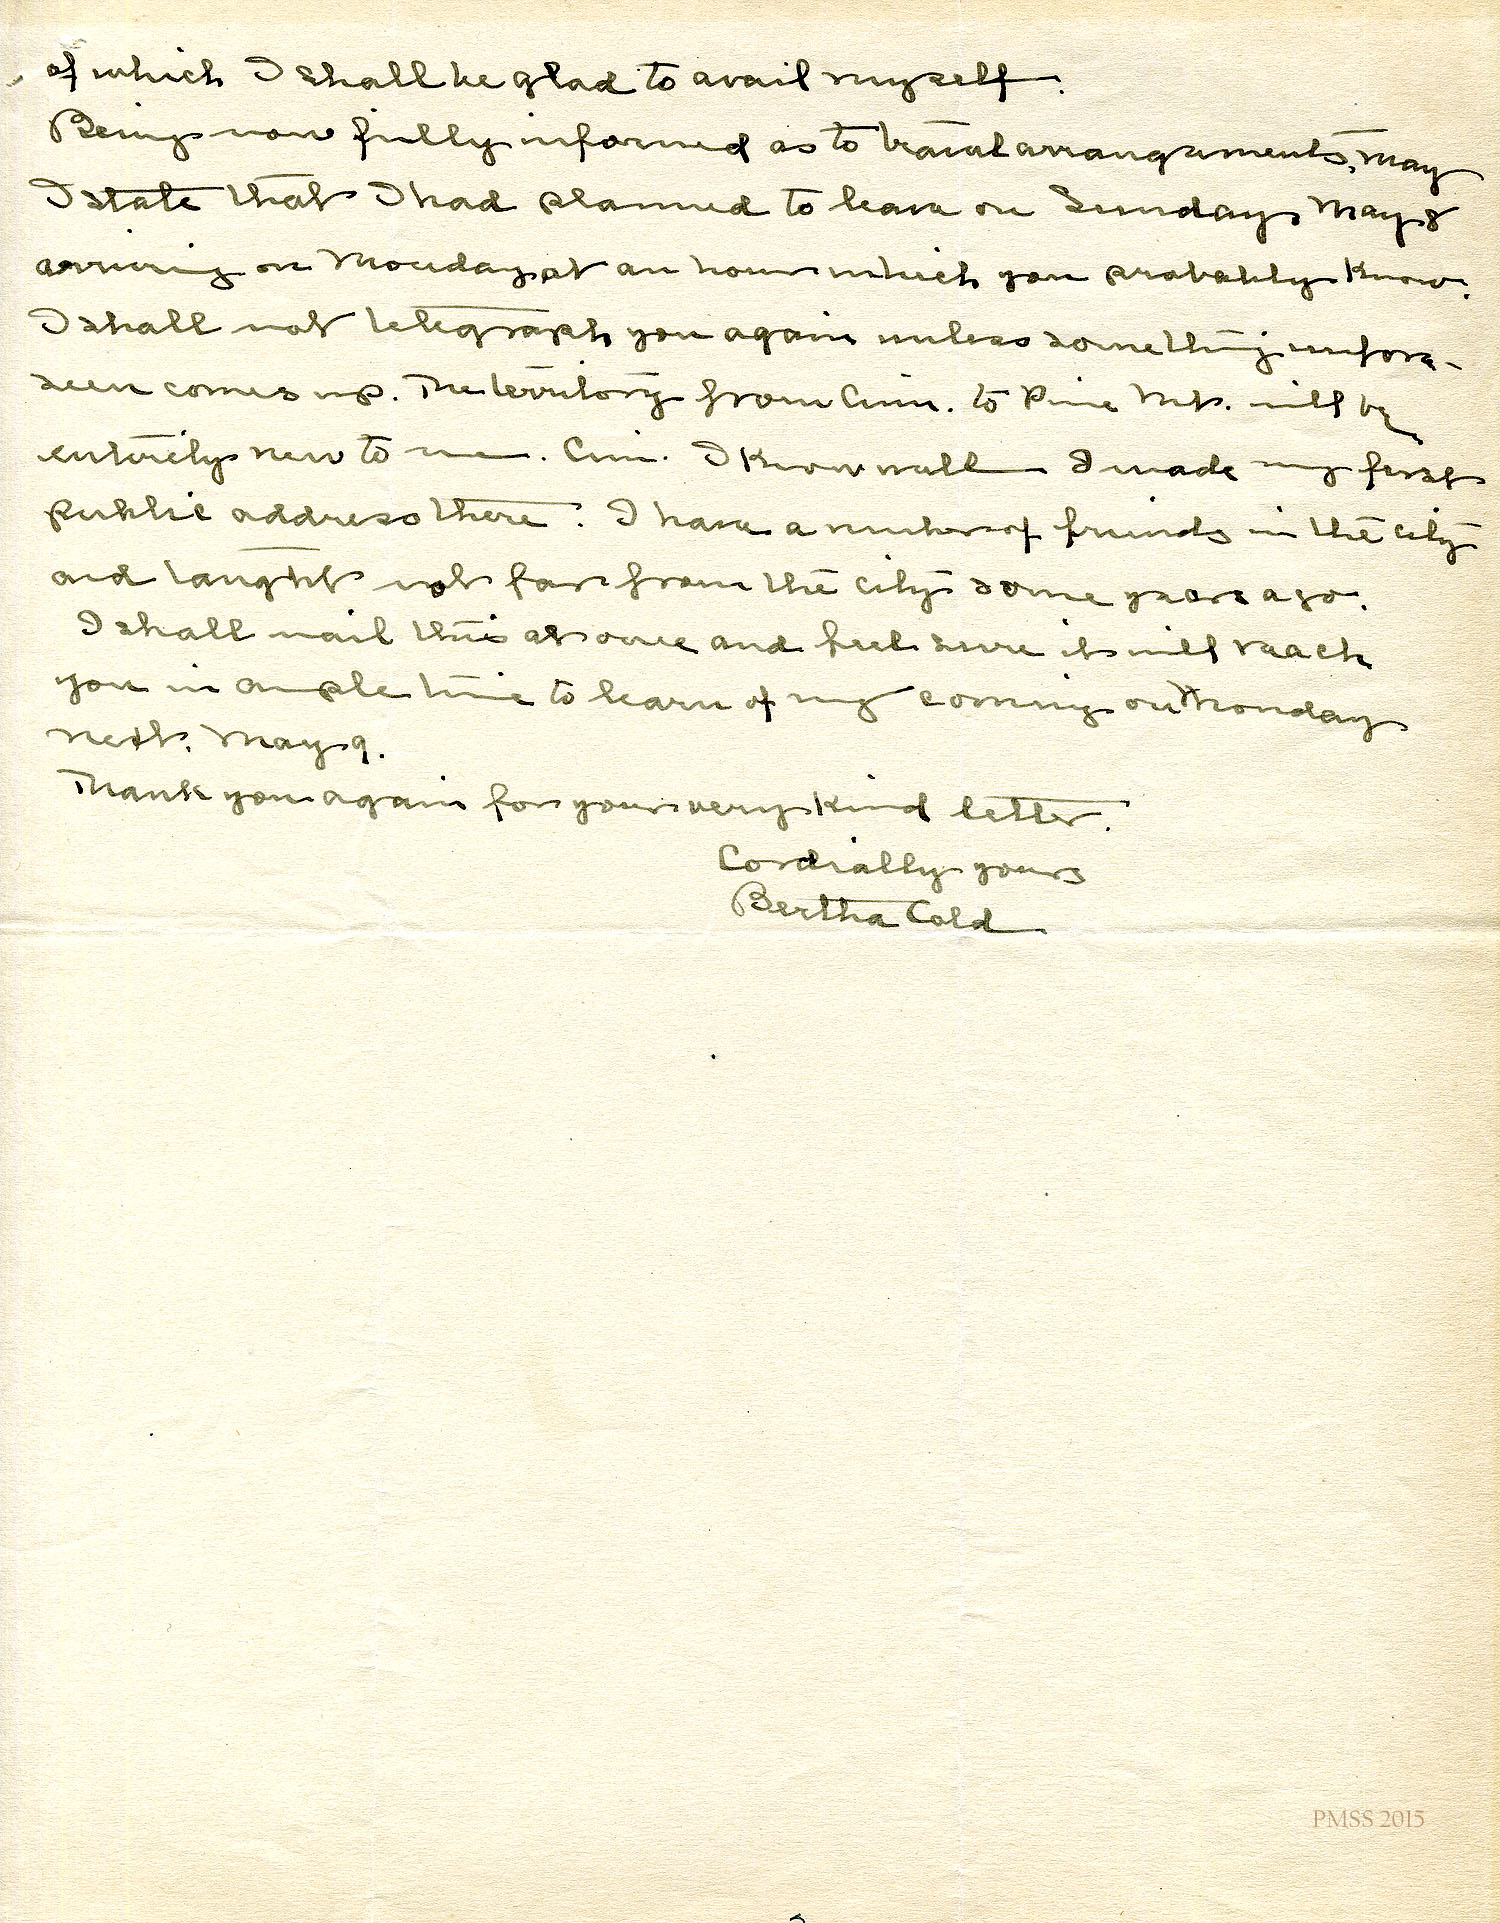 of which I shall be glad to avail myself.
Being now fully informed as to travel arrangements, may
I state that I had planned to leave on Sunday, May 8
arriving on Monday at an hour which you probably know.
I shall not telegraph you again unless something unfore-
seen comes up. The territory from Cinn. to Pine Mt. will be
entirely new to me. Cinn. I know well I made my first
public address there. I have a number of friends in the city
and taught not far from the city some years ago.
I shall mail this at once and feel sure it will reach
you in ample time to learn of my coming on Monday
next, May 9.
Thank you again for your very kind letter.
Cordially yours
Bertha Cold
PMSS 2015